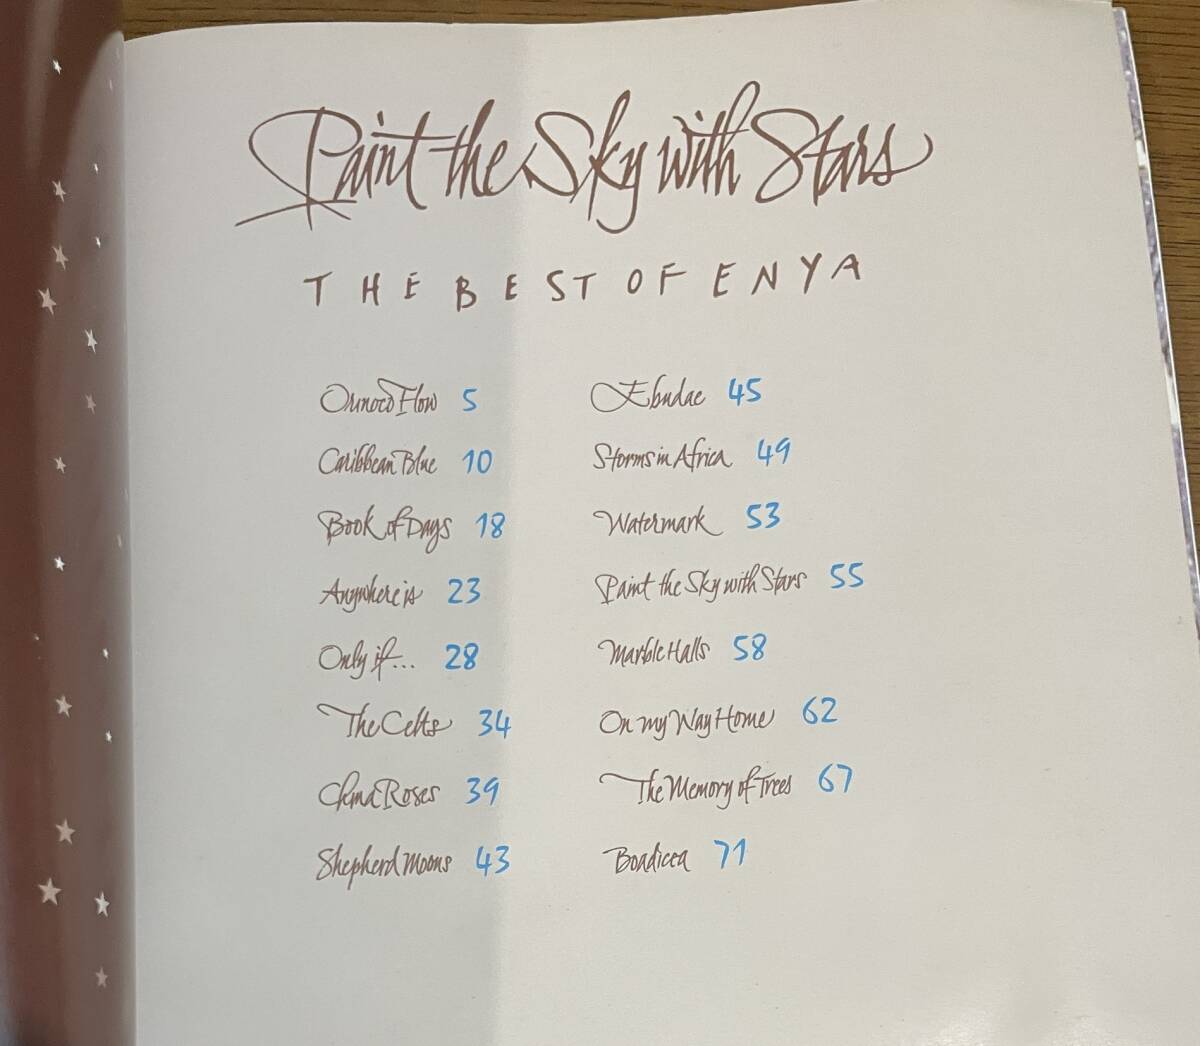 Paint the Sky with Stars
THE BEST OF ENYA
Orinoco Flow 5
Caribbean Blue 10
Book of Days 18
Anywhere is 23
Only if... 28
The Celts 34
China Roses 39
Shepherd Moons 43
Ebudae 45
Storms in Africa 49
Watermark 53
Paint the Sky with Stars 55
Marble Halls 58
On my Way Home 62
The Memory of Trees 67
Boadicea 71